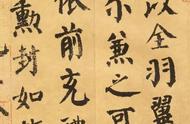 以全羽翼
尓兼之可
依前充禮
勳封如故